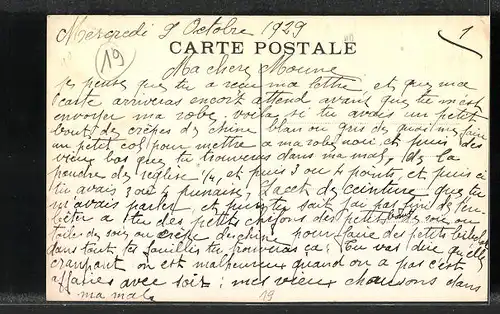 Mercredi 9 Octobre 1929
1
19
CARTE POSTALE
Ma chere Moune
je pense que tu a recu ma lettre, et que ma
carte arriveras encore attend avant que tu m'est
envoyer ma robe, voila si tu avais un petit
bout de crêpes de chine blan ou gris de quoi me faire
un petit col pour mettre a ma robe noir, et puis des
vieux bas que tu trouveras dans ma mal, de la
poudre de reglise 1/4, et puis 3 ou 4 points, et puis si
tu avais 3 ou 4 punaises, lacet de ceinture que tu
m'avais parler et puis tu sait j'ai pas fini de t'em
bêter a tu des petits chifons des petit bout soie ou
toiles de soie ou crêpe de chine pour faire des petits
dans tout tes fouilles tu trouveras ça: Tu vas dire qu'elle
crampont on est malheureux quand on a pas c'est
affaires avec soit; mes vieux chaussons dans
ma mals
19